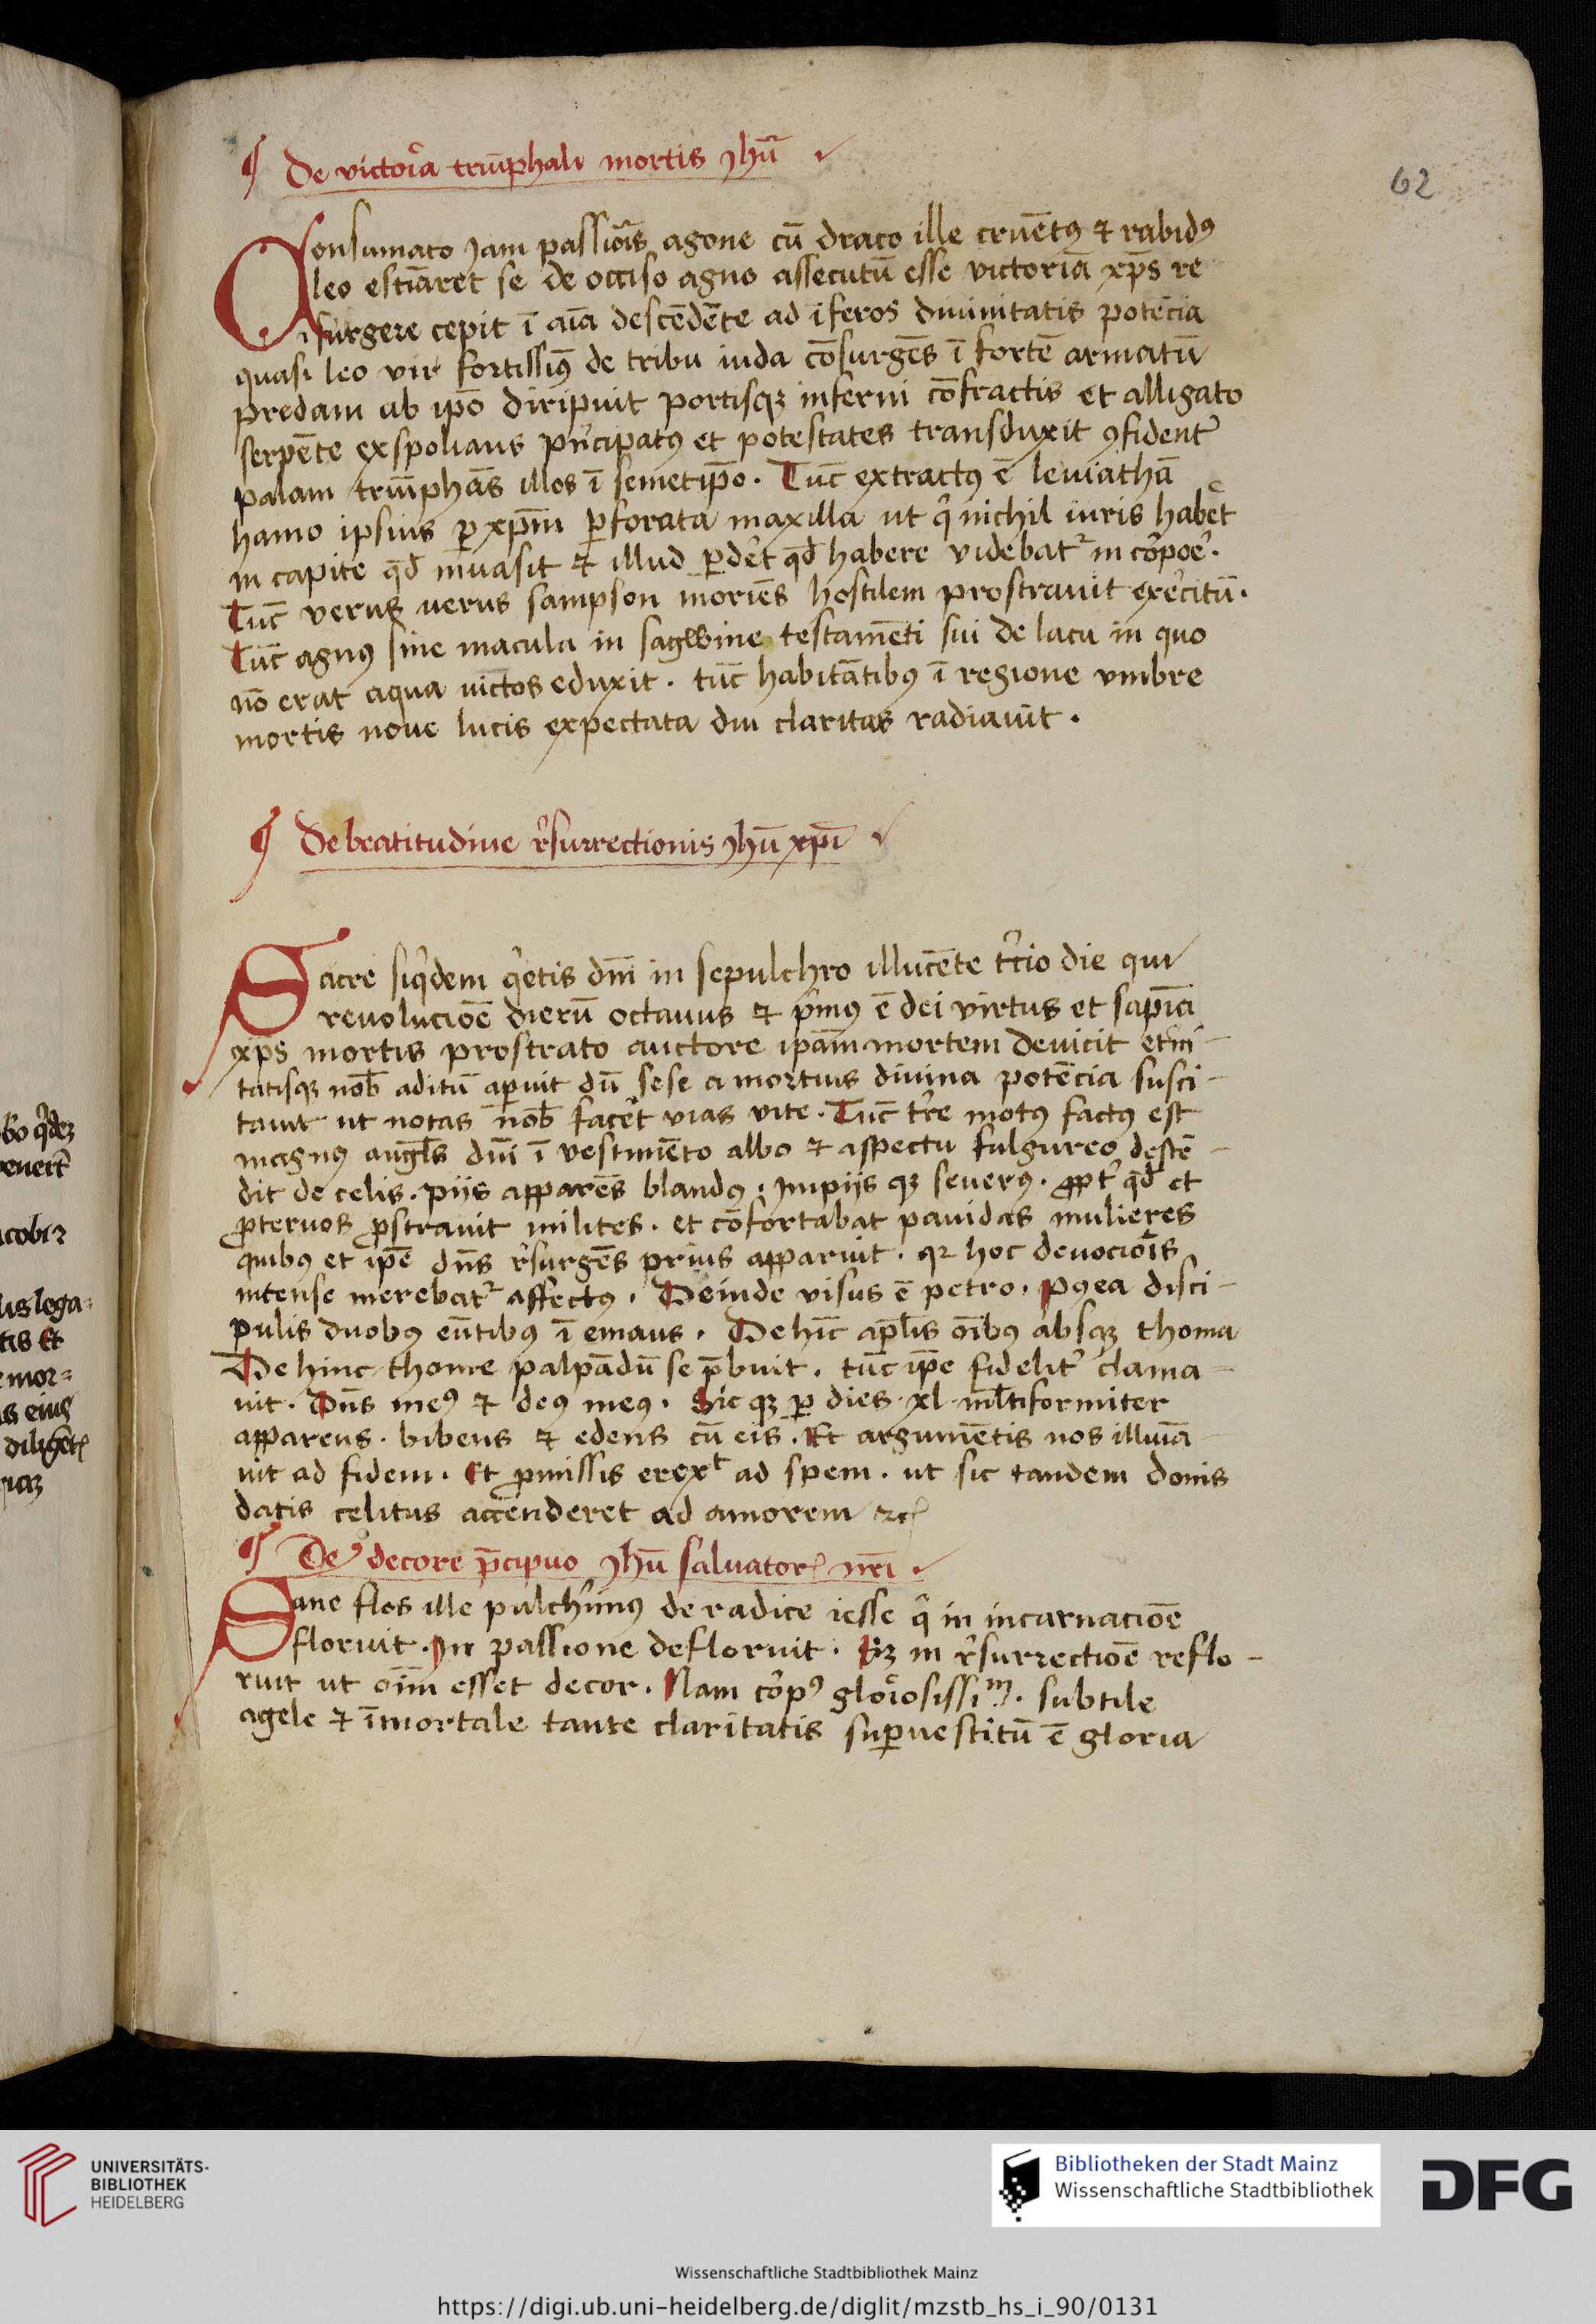 ¶ De victoria triūphali mortis yhū
62
Consumato jam passiōis agone cū draco ille cruētꝰ ⁊ rabidꝰ
leo estiāret se de occiso agno assecutū esse victoriā xp̄s re
surgere cepit ī aīa descēdēte ad īferos diuinitatis potēcia
quasi leo vir fortissiꝰ de tribu iuda cōsurgēs ī fortē armatū
predam ab ip̄o diripuit portisqꝫ inferni cōfractis et alligato
serpēte exspolians pn̄cipatꝰ et potestates transduxit ꝯfident̄
palam triūphās illos ī semetip̄o . Tūc extractꝰ ē leuiathā
hamo ipsius ꝑ xp̄m ꝑforata maxilla ut q̄ nichil iuris habēt
in capite qd̄ inuasit ⁊ illud ꝑdēt qd̄ habere videbat᷑ in cōrpoē .
Tūc verus uerus sampson moriēs hostilem prostrauit exēcitū .
Tūc agnꝰ sine macula in sagwine testamēti sui de lacu in quo
nō erat aqua uīctos eduxit . tūc habitātibꝰ ī regione vmbre
mortis noue lucis expectata diu claritas radiauit .
¶ De beatitudine r̄surrectionis yhū xp̄i
Sacre siq̄dem q̄etis dn̄i in sepulchro illucēte tr̄cio die qui
reuolucioē dierū octauus ⁊ p̄mꝰ ē dei virtus et sapīa
xp̄s mortis prostrato auctore ip̄am mortem deuicit et̄ni-
tatisqꝫ nob̄ aditū aꝑuit dū sese a mortuis diuina potēcia susci-
tauit ut notas nob̄ facēt vias vite . Tūc tr̄e motꝰ factꝰ est
magnꝰ angl̄s dn̄i ī vestimēto albo ⁊ aspectu fulgureo descē-
dit de celis . piis apparēs blandꝰ . jmpijs qꝫ seuerꝰ . ꝓpt̄ qd̄ et
ꝓteruos ꝓstrauit milites . et cōfortabat pauidas mulieres
quibꝰ et ip̄e dn̄s r̄surgēs prius apparuit . qꝛ hoc deuociōis
intense merebat᷑ affectꝰ . Deinde visus ē petro . Pꝰea disci-
pulis duobꝰ eūtibꝰ ī emaus . De hīc apl̄is oībꝰ absqꝫ thoma
De hinc thome palpādū se p̄buit . tūc ip̄e fidelit̄ clama-
uit . Dn̄s meꝰ ⁊ deꝰ meꝰ . Sic qꝫ ꝑ dies xl ml̄tiformiter
apparens . bibens ⁊ edens cū eis . Et argumētis nos illuīa-
uit ad fidem . Et ꝓmissis erexᵗ ad spem . ut sic tandem donis
datis celitus accenderet ad amorem ⁊cꝭ
¶ De decore p̄cipuo yhū saluatorꝭ nr̄i
Sane flos ille pulchr̄imꝰ de radice iesse q̄ in incarnacioē
floruit . In passione defloruit . Sꝫ in r̄surrectioē reflo-
ruit ut oīm esset decor . Nam cōrpꝰ gloiosissiᵐ . subtile
agele ⁊ īmortale tante claritatis suꝑuestitū ē gloria
bo q̄deꝫ
uenert̄
acobi ⁊
uis lega=
tis Et
e mor=
is eius
diligēt
UNIVERSITÄTS-
BIBLIOTHEK
HEIDELBERG
Bibliotheken der Stadt Mainz
Wissenschaftliche Stadtbibliothek
DFG
Wissenschaftliche Stadtbibliothek Mainz
https://digi.ub.uni-heidelberg.de/diglit/mzstb_hs_i_90/0131